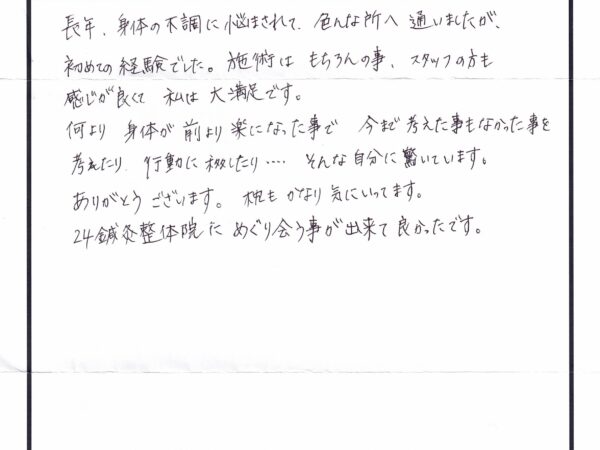 長年、身体の不調に悩まされて、色んな所へ通いましたが、
初めての経験でした。施術はもちろんの事、スタッフの方も
感じが良くて私は大満足です。
何より身体が前より楽になった事で今まで考えた事もなかった事を
考えたり、行動に移したり‥‥そんな自分に驚いています。
ありがとうございます。枕もかなり気にいってます。
24鍼灸整体院にめぐり会う事が出来て良かったです。